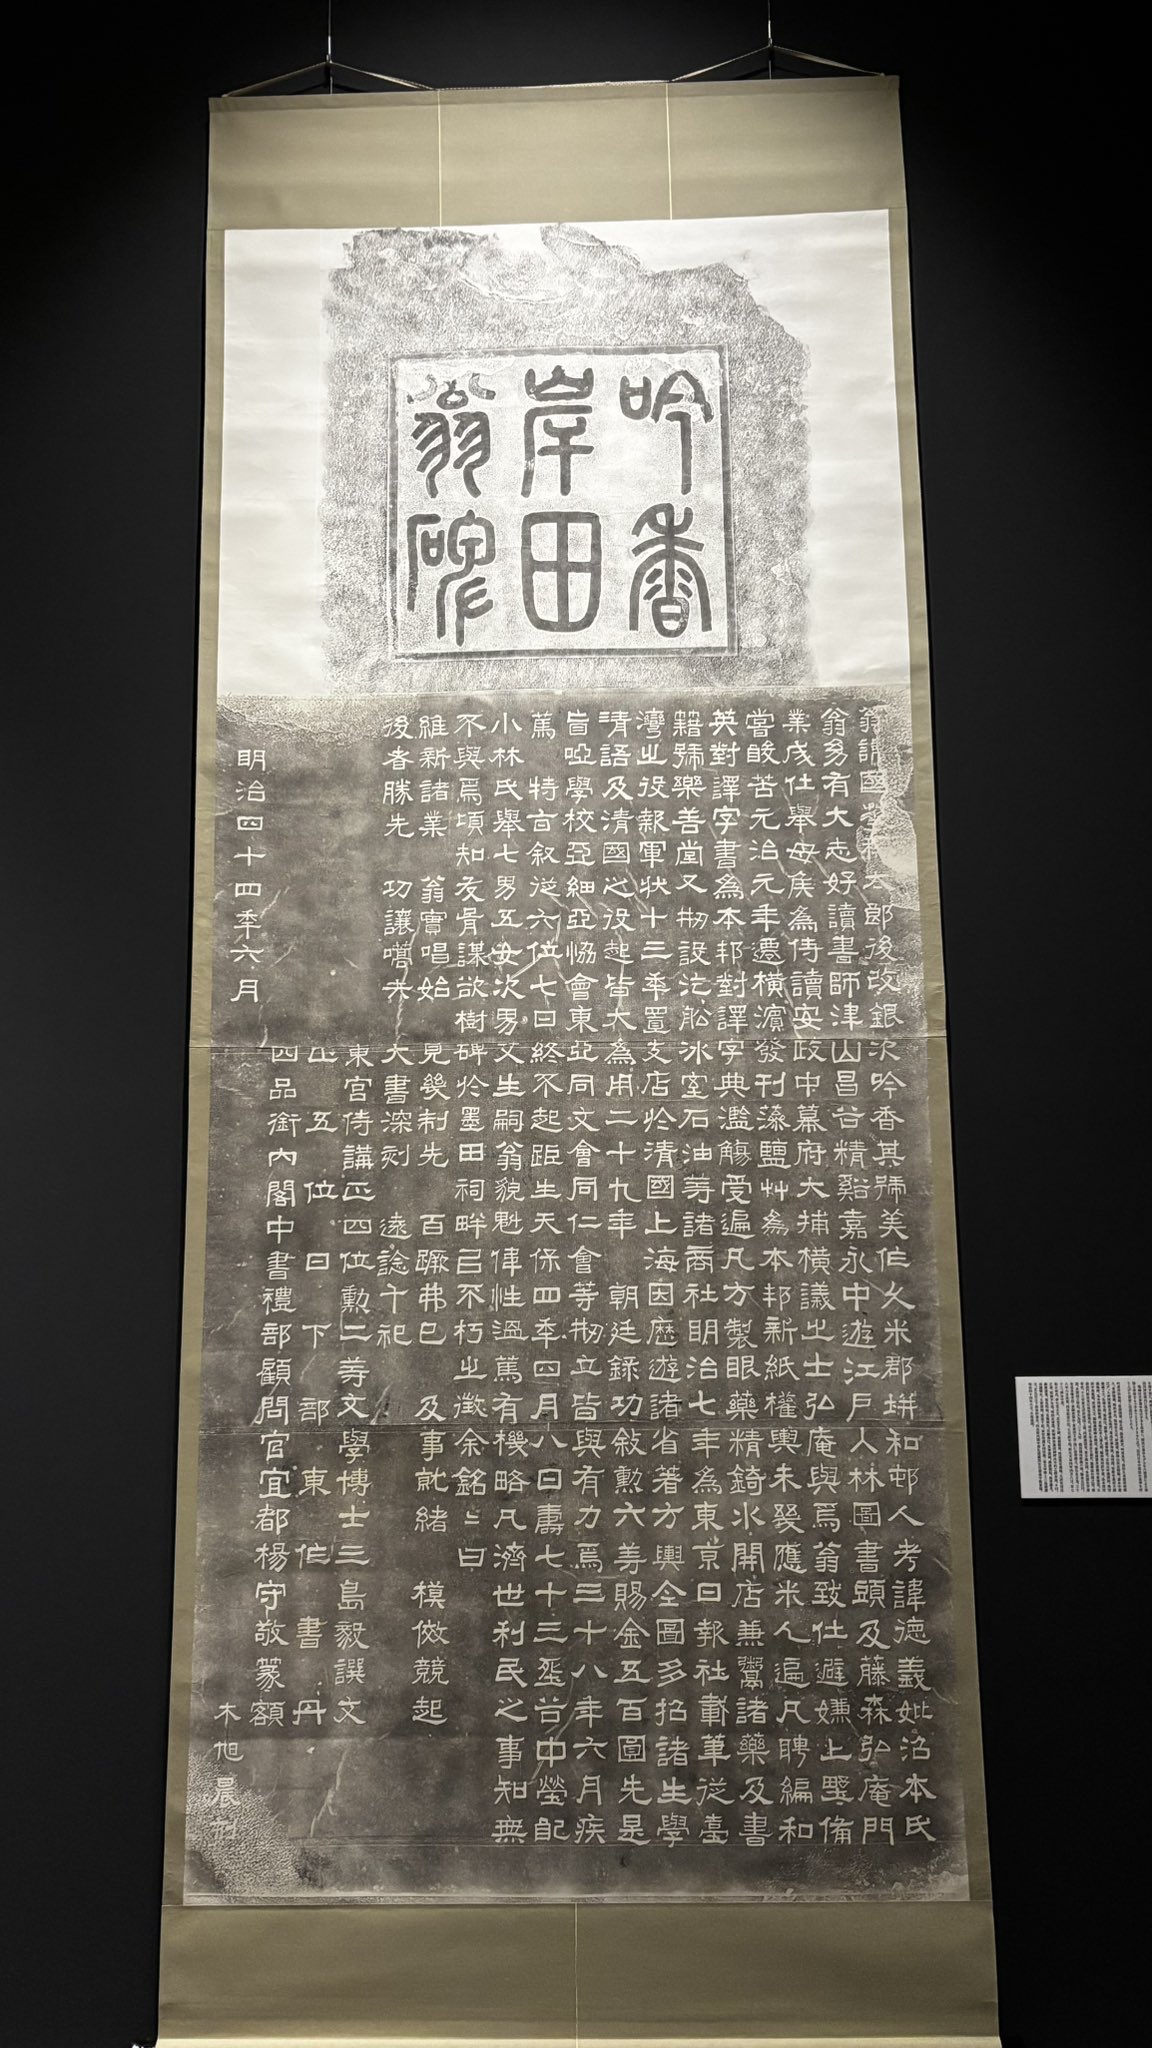 吟香
岸田
翁碑
翁諱國太郎後改銀次吟香其號美作久米郡垪和邨人考諱德義妣沼本氏
翁夙有大志好讀書師津山昌谷精谿嘉永中遊江戶入林圖書頭及藤森弘庵門
業成仕擧母矦為侍讀安政中幕府大捕橫議之士弘庵與焉翁致仕避嫌上墅備
嘗酸苦元治元年遷橫濱發刊藻鹽艸為本邦新紙權輿未幾應米人遍凡聘編和
英對譯字書為本邦對譯字典濫觴受遍凡方製眼藥精錡水開店兼鬻諸藥及書
籍號樂善堂又刱設汽船氷室石油等諸商社明治七年為東京日報社載筆從臺
灣之役報軍狀十三年置支店於清國上海因歷遊諸省著方輿全圖多招諸生學
清語及清國之役起皆大為用二十九年 朝廷錄功敘勳六等賜金五百圓先是
盲啞學校亞細亞協會東亞同文會同仁會等刱立皆與有力焉三十八年六月疾
篤 特旨叙從六位七日終不起距生天保四年四月八日壽七十三葬谷中塋配
小林氏擧七男五女次男艾生嗣翁貌魁偉性溫篤有機略凡濟世利民之事知無
不與焉頃知友胥謀欲樹碑於墨田祠畔以不朽之徵余銘〻曰
維新諸業 翁實唱始 見幾制先 百蹶弗已 及事就緒 模倣競起
後者勝先 功讓嚆矢 大書深刻 遠諗千祀
東宮侍講正四位勳二等文學博士三島毅譔文
正五位日下部東作書丹
四品銜內閣中書禮部顧問官宜都楊守敬篆額
明治四十四年六月
木旭晨刻